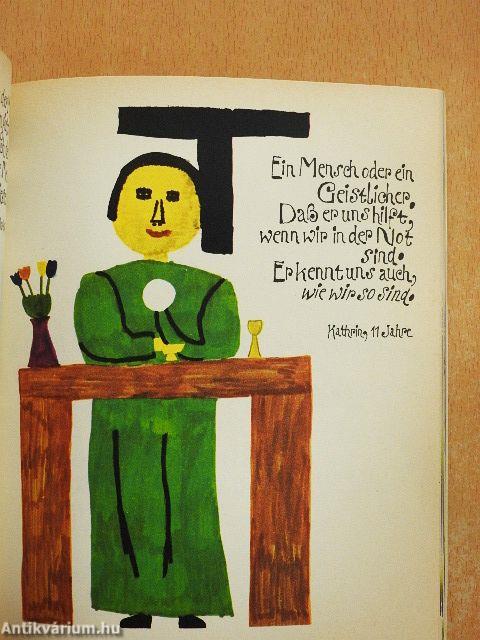 Ein Mensch oder ein
Geistlicher.
Daß er uns hilft,
wenn wir in der Not
sind.
Er kennt uns auch,
wie wir so sind.
Kathrin, 11 Jahre
Antikvárium.hu